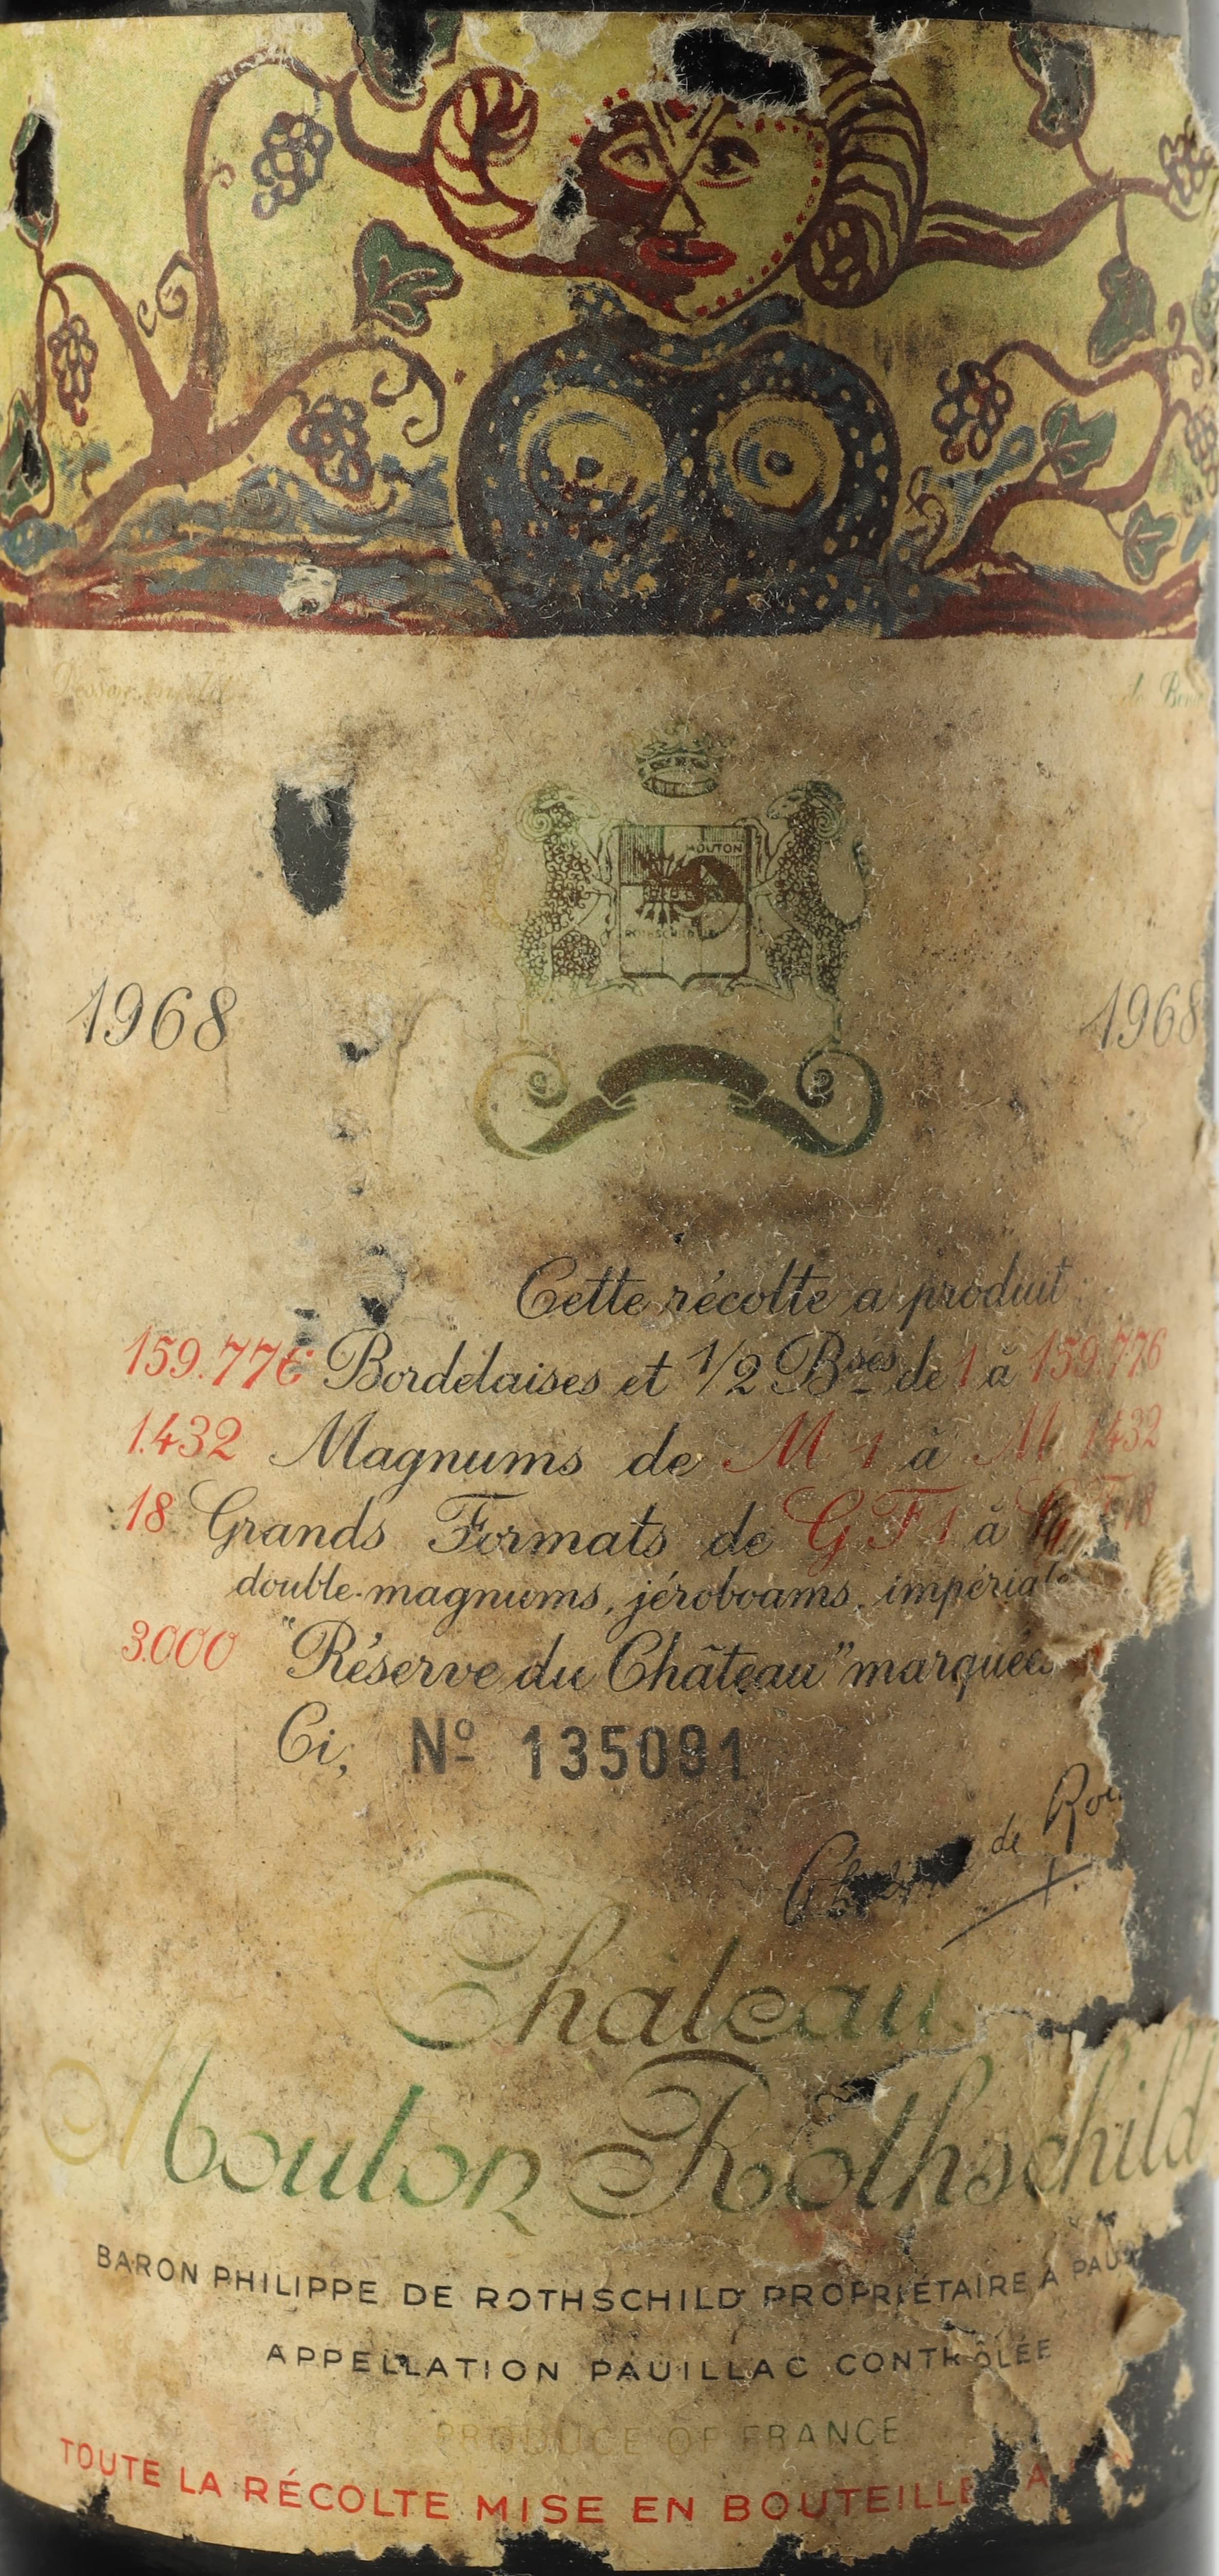 Dessin inédit
de Bon
MOUTON
ROTHSCHILD
1968
1968
Cette récolte a produit:
159.776 Bordelaises et 1/2 Bses de 1 à 159.776
1.432 Magnums de M 1 à M 1432
18 Grands Formats de G F 1 à G F 18
double-magnums, jéroboams, impériale
3.000 "Réserve du Château" marquées
Ci, Nº 135091
de Rot
Château
Mouton Rothschild
BARON PHILIPPE DE ROTHSCHILD PROPRIÉTAIRE À PAU
APPELLATION PAUILLAC CONTRÔLÉE
PRODUCE OF FRANCE
TOUTE LA RÉCOLTE MISE EN BOUTEILLE A